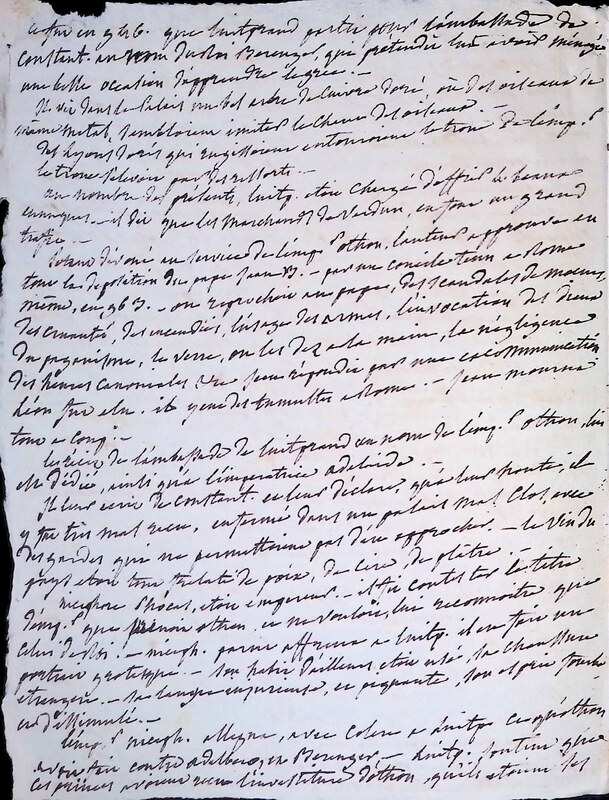 ce fut en 946. que luitprand partit pour l'ambassade de
Constant. au nom du Roi Berenger, qui prétendit lui avoir ménagé
une belle occasion d'apprendre le grec. —
Il vit dans le Palais un bel arbre de cuivre doré, où des oiseaux de
même métal, sembloient imiter le chant des oiseaux. —
des Lyons dorés qui rugissoient entouroient le trone de l'emp.r
le trone s'élevoit par des ressorts. —
au nombre des présents, luitp. étoit chargé d'offrir 4 beaux
eunuques. — il dit que les marchands de Verdun, en font un grand
trafic. —
dévoué au service de l'emp.r othon, l'auteur approuve en
tout la déposition du pape Jean 12. — par un concile tenu a Rome
même, en 963. — on reprochoit au pape, des scandales de moeurs,
des cruautés, des incendies, l'usage des armes, l'invocation des dieux
du paganisme, le verre, ou les dez a la main, la négligence
des heures canoniales &c. Jean répondit par une excommunication
Léon fut elu. il y eut des tumultes a Rome. — Jean mourut
tout a coup. —
le récit de l'ambassade de luitprand au nom de l'emp.r othon, lui
est dédié, ainsi qu'a l'impératrice adelaide. —
Il leur écrit de Constant. et leur déclare, qu'a leur honte, il
y fut très mal reçu, enfermé dans un palais mal clos, avec
des gardes qui ne permettoient pas d'en approcher. — le vin du
pays étoit tout frelaté de poix, de cire, de plâtre. —
nicephore Phocas, étoit empereur. — il fit contester le titre
d'emp.r que prenoit othon, et ne vouloit, lui reconnoitre que
celui de Roi. — niceph. parut affreux a luitp. il en fait un
portrait grotesque. — son habit d'ailleurs étoit usé, sa chaussure
étrangere. — sa langue injurieuse, et piquante, son esprit fourbe
et dissimulé. —
l'emp.r niceph. allegue, avec colere a luitp. ce qu'othon
avoit fait contre adelbert, et Berenger. — luitp. soutint que
ces princes avoient reçu l'investiture d'othon, qu'ils étoient ses